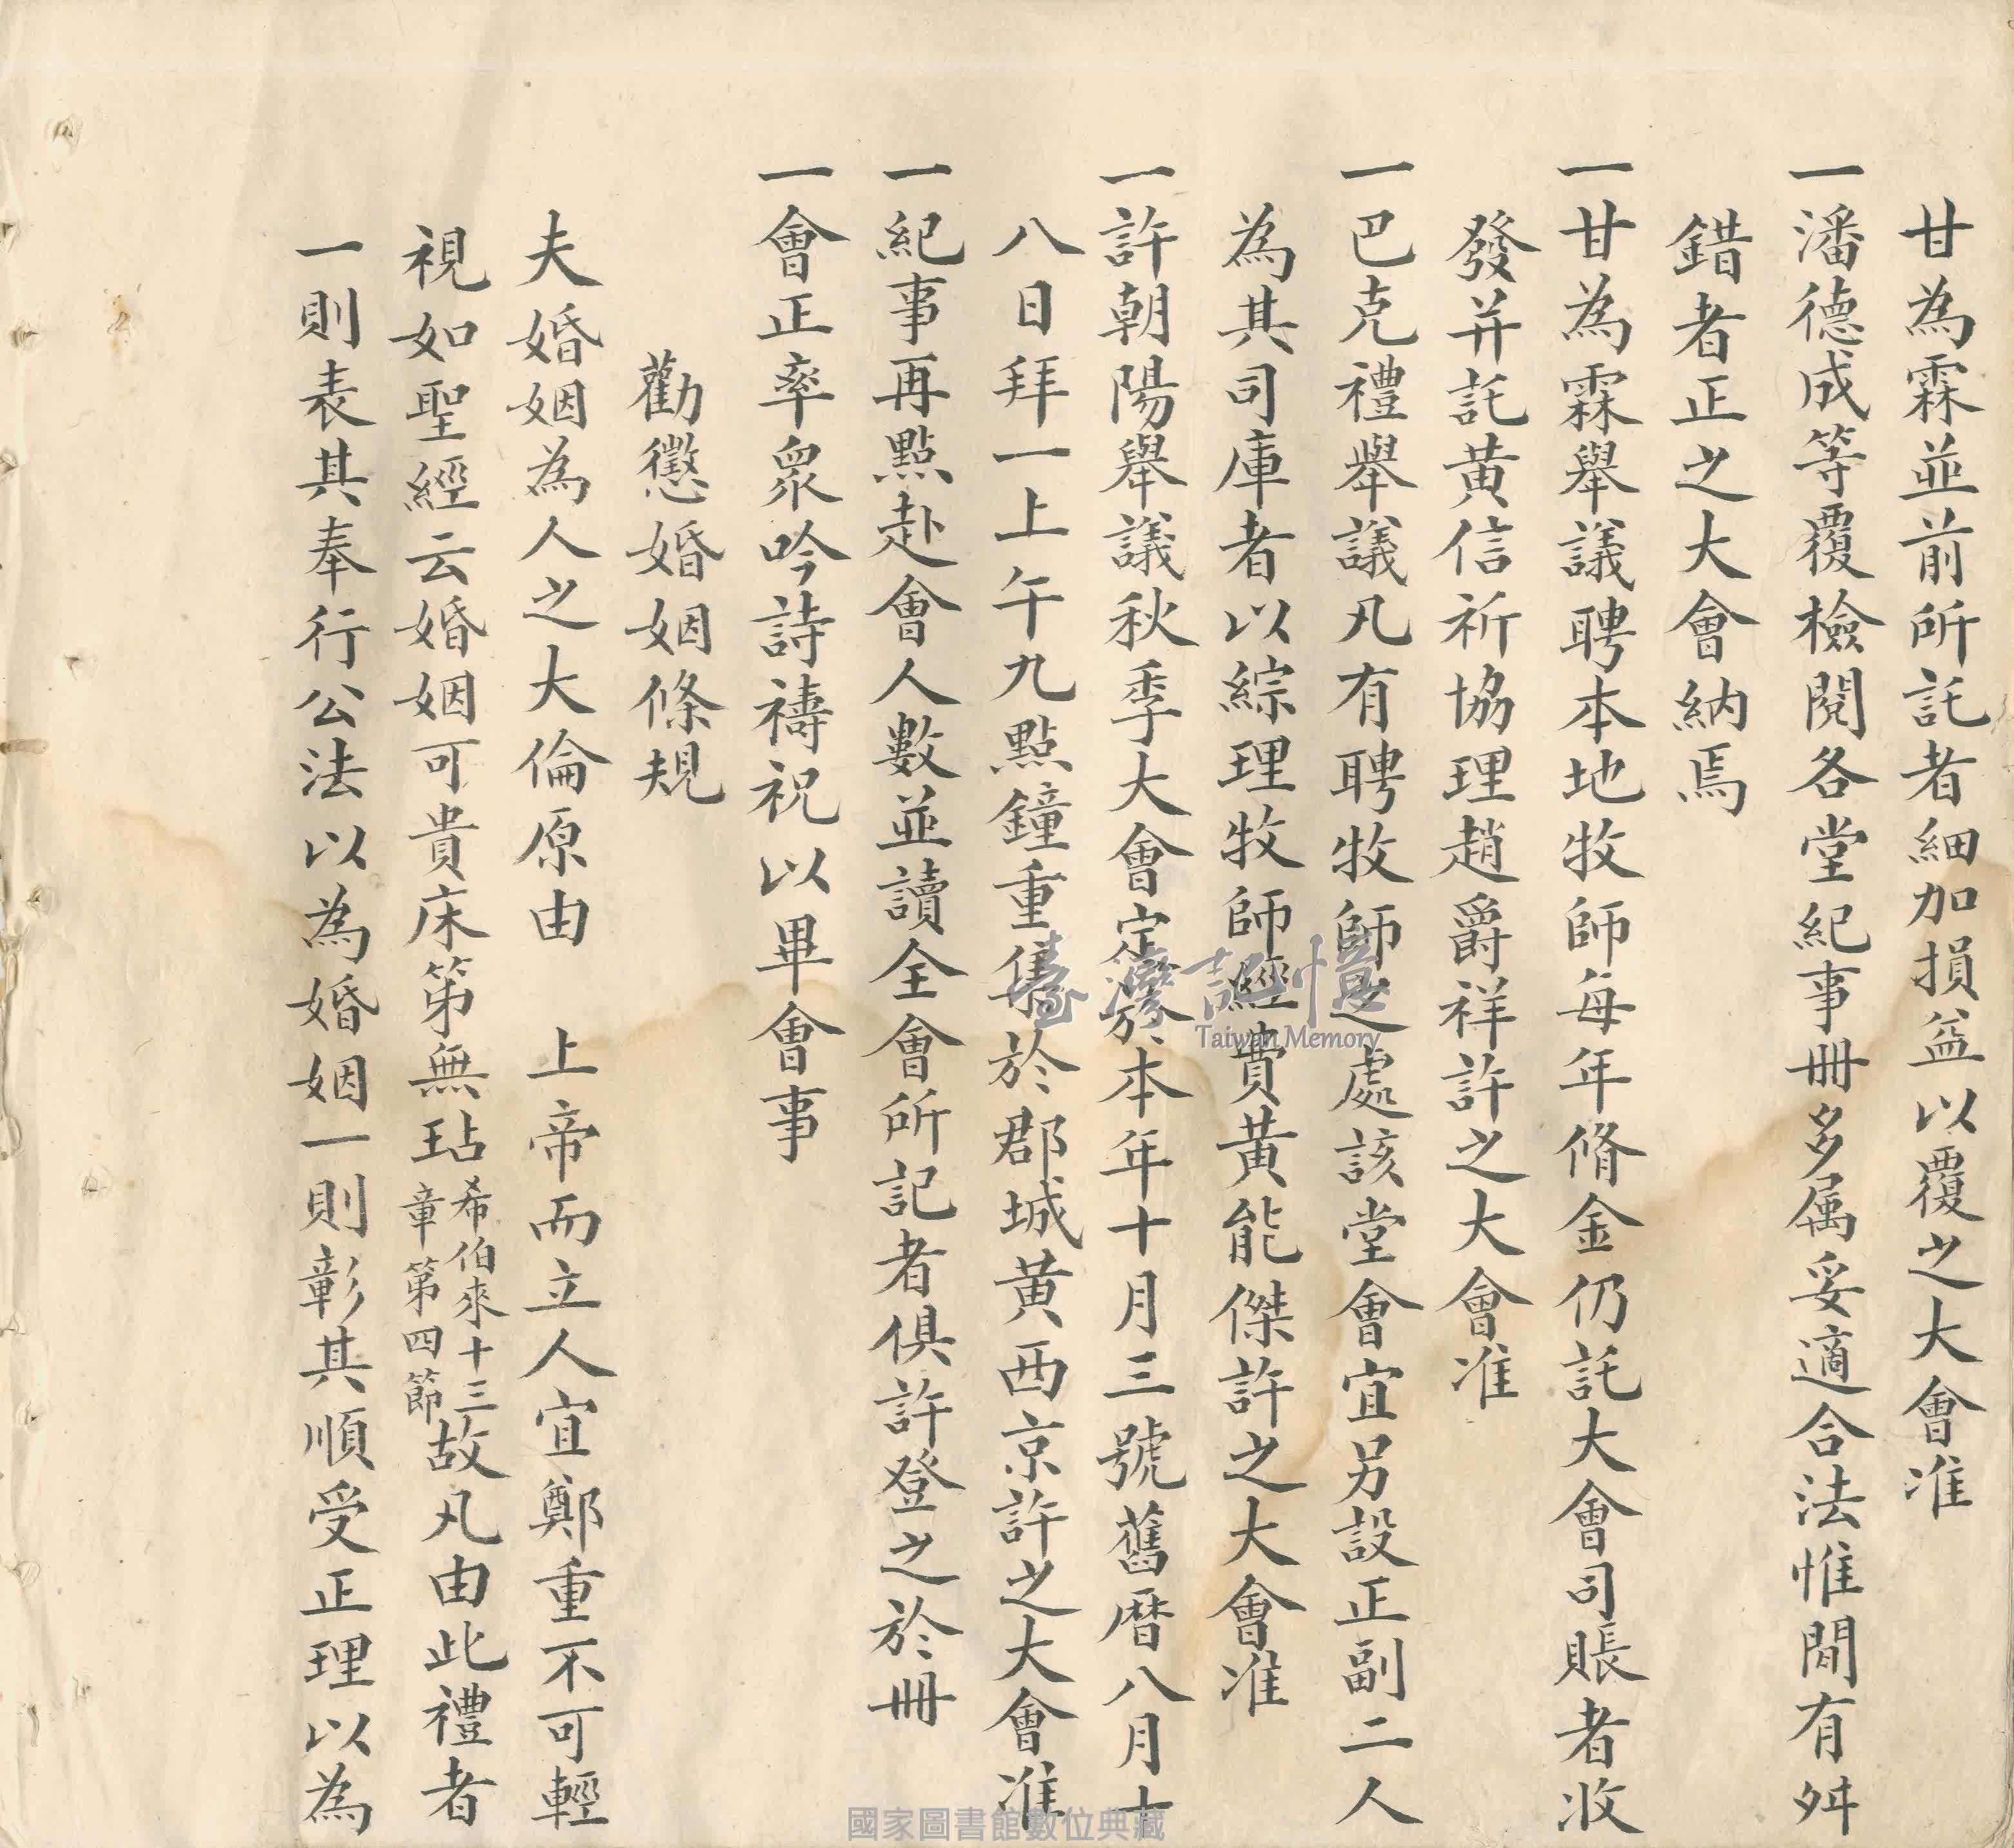 甘為霖並前所託者細加損益以覆之大會准
一潘德成等覆檢閱各堂紀事冊多属妥適合法惟間有舛
錯者正之大會納焉
一甘為霖舉議聘本地牧師每年脩金仍託大會司賬者收
發并託黃信祈協理趙爵祥許之大會准
一巴克禮舉議凡有聘牧師之處該堂會宜另設正副二人
為其司庫者以綜理牧師經費黃能傑許之大會准
一許朝陽舉議秋季大會定於本年十月三號舊曆八月十
八日拜一上午九點鐘重集於郡城黃西京許之大會准
一紀事再點赴會人數並讀全會所記者俱許登之於冊
一會正率眾吟詩禱祝以畢會事
勸懲婚姻條規
夫婚姻為人之大倫原由 上帝而立人宜鄭重不可輕
視如聖經云婚姻可貴床笫無玷希伯來十三章第四節故凡由此禮者
一則表其奉行公法以為婚姻一則彰其順受正理以為
臺灣記憶
Taiwan Memory
國家圖書館數位典藏